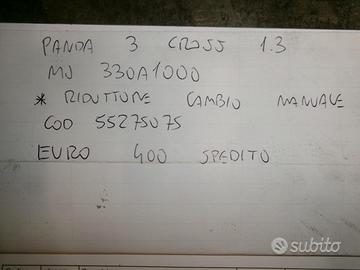 PANDA 3 CROSS 1.3
MJ 330A1000
* RIDUTTORE CAMBIO MANUALE
COD 55275075
EURO 400 SPEDITO
subito